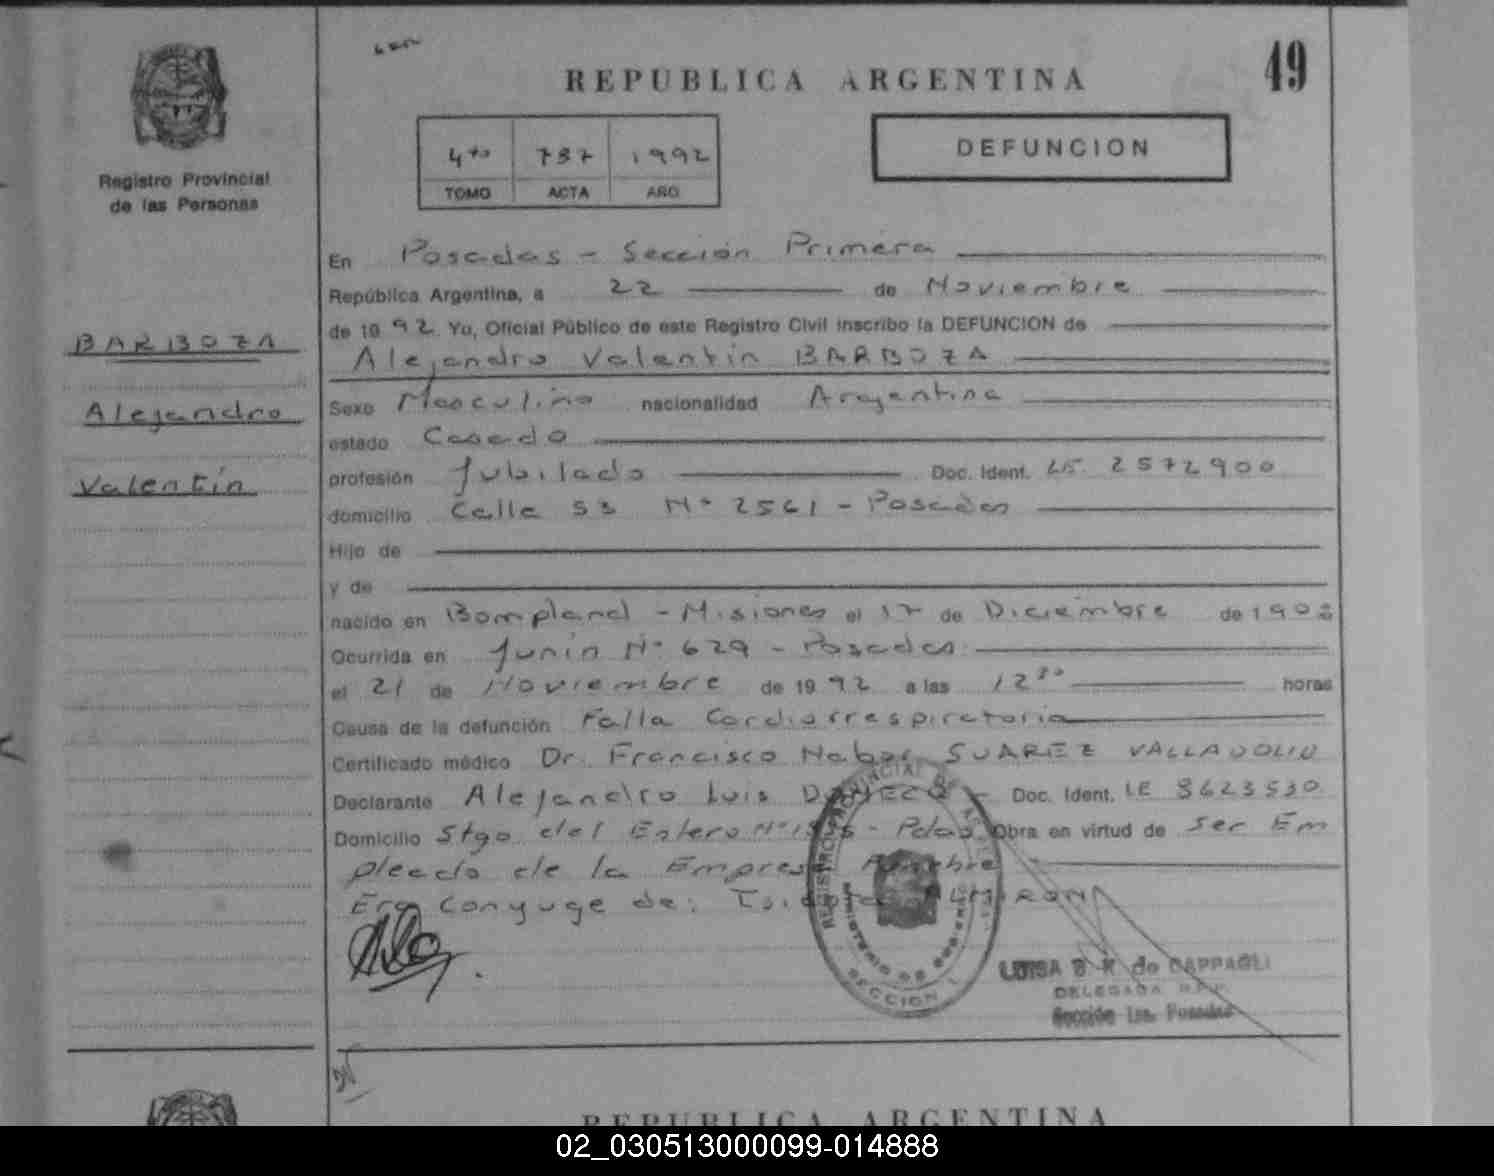 REPUBLICA ARGENTINA
49
4to 737 1992
TOMO ACTA AÑO
DEFUNCION
Registro Provincial
de las Personas
BARBOZA
Alejandro
Valentín
En Posadas - Sección Primera
República Argentina, a 22 de Noviembre
de 1992. Yo, Oficial Público de este Registro Civil inscribo la DEFUNCION de
Alejandro Valentín BARBOZA
Sexo Masculino nacionalidad Argentina
estado Casado
profesión Jubilado Doc. Ident. 2572900
domicilio Calle 53 Nº 2561 - Posadas
Hijo de
y de
nacido en Bompland - Misiones el 17 de Diciembre de 190
Ocurrida en Junín Nº 629 - Posadas
el 21 de Noviembre de 1992 a las 12 horas
Causa de la defunción Falla Cardiorrespiratoria
Certificado médico Dr. Francisco SUAREZ VALLADOLID
Declarante Alejandro Luis Doc. Ident. LE 8623530
Domicilio Stgo del Estero Nº - Pdas Obra en virtud de Ser Em
pleado de la Empresa Funebre
Era Conyuge de: ALMIRON
REGISTRO PROVINCIAL DE LAS PERSONAS
MINISTERIO DE GOBIERNO
SECCION 1
LUISA B K de CAPPAGLI
DELEGADA R.P.P.
Sección 1ra. Posadas
REPUBLICA ARGENTINA
02_030513000099-014888